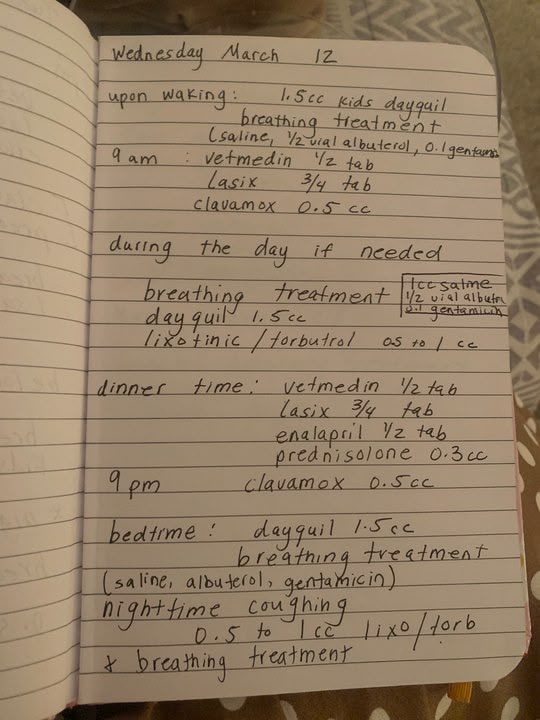 Wednesday March 12
upon waking: 1.5cc kids dayquil
breathing treatment
(saline, 1/2 vial albuterol, 0.1 gentamicin
9 am : vetmedin 1/2 tab
lasix 3/4 tab
clavamox 0.5 cc
during the day if needed
breathing treatment
1cc saline
1/2 vial albutr
0.1 gentamicin
dayquil 1.5cc
lixotinic / torbutrol 0.5 to 1 cc
dinner time: vetmedin 1/2 tab
lasix 3/4 tab
enalapril 1/2 tab
prednisolone 0.3cc
9pm clavamox 0.5 cc
bedtime: dayquil 1.5cc
breathing treatment
(saline, albuterol, gentamicin)
nighttime coughing
0.5 to 1 cc lixo/torb
& breathing treatment